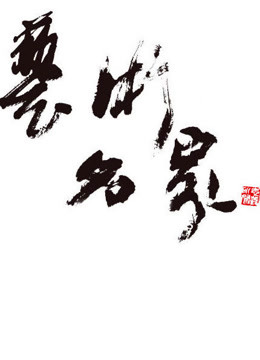 藝術名家